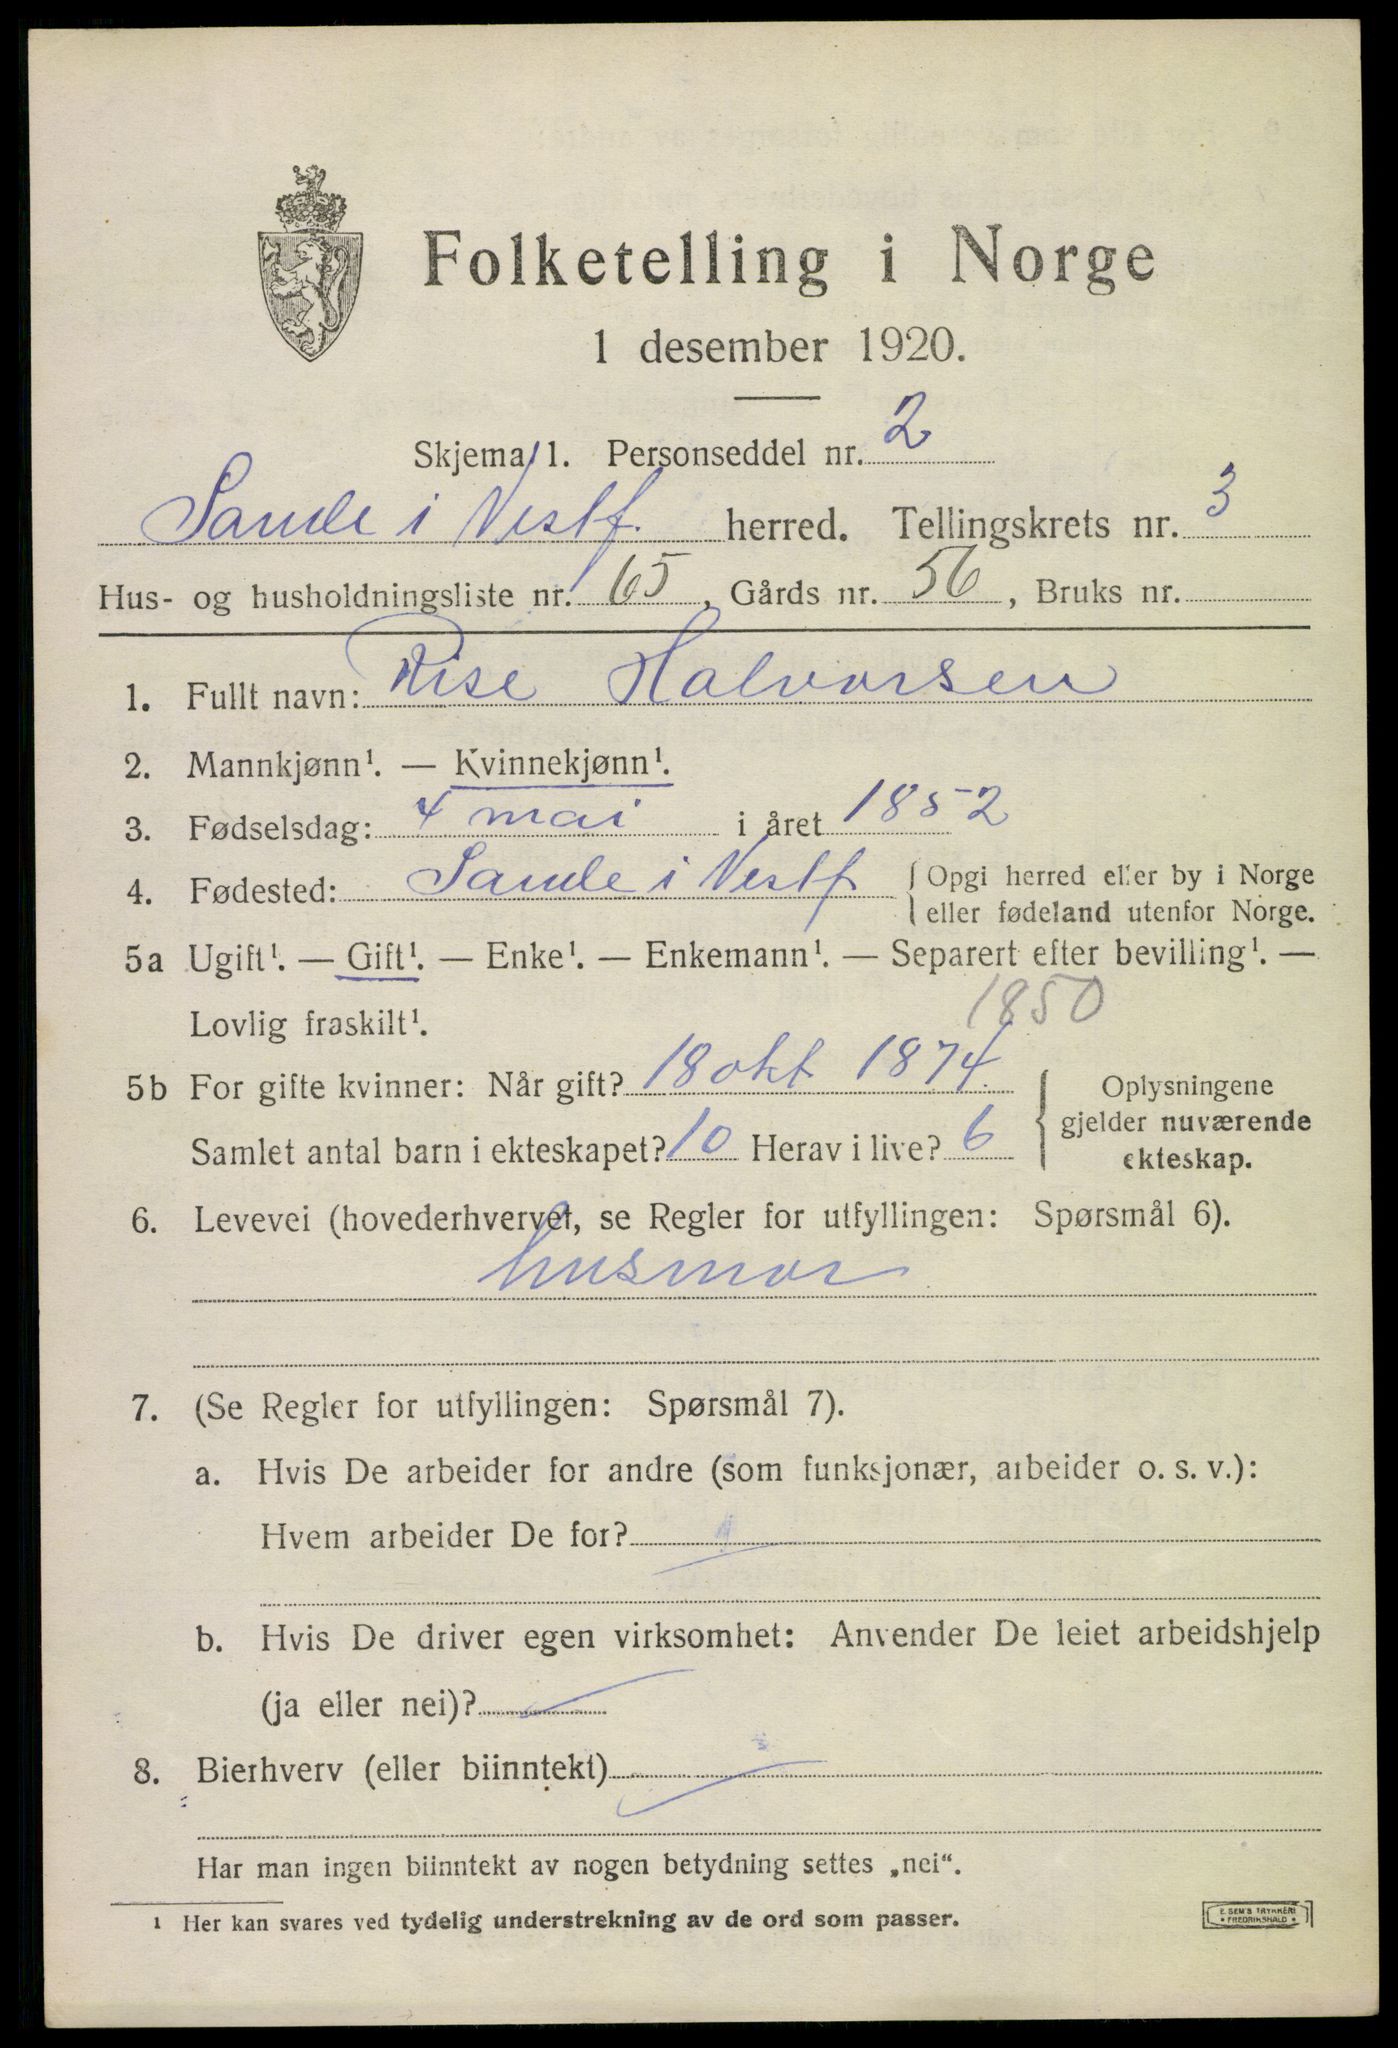 Folketelling i Norge
1 desember 1920.
Skjema 1. Personseddel nr. 2
Sande i Vestf. herred. Tellingskrets nr. 3
Hus- og husholdningsliste nr. 65, Gårds nr. 56, Bruks nr.
1. Fullt navn: Rise Halvorsen
2. Mannkjønn¹. — Kvinnekjønn¹.
3. Fødselsdag: 4 mai i året 1852
4. Fødested: Sande i Vestf { Opgi herred eller by i Norge
eller fødeland utenfor Norge.
5a Ugift¹. — Gift¹. — Enke¹. — Enkemann¹. — Separert efter bevilling¹. —
Lovlig fraskilt¹. 1850
5b For gifte kvinner: Når gift? 18 okt 1874. { Oplysningene
gjelder nuværende
Samlet antal barn i ekteskapet? 10 Herav i live? 6 ekteskap.
6. Levevei (hovederhvervet, se Regler for utfyllingen: Spørsmål 6).
husmor
7. (Se Regler for utfyllingen: Spørsmål 7).
a. Hvis De arbeider for andre (som funksjonær, arbeider o. s. v.):
Hvem arbeider De for?
b. Hvis De driver egen virksomhet: Anvender De leiet arbeidshjelp
(ja eller nei)?
8. Bierhverv (eller biinntekt)
Har man ingen biinntekt av nogen betydning settes „nei“.
1 Her kan svares ved tydelig understrekning av de ord som passer.
E. SEM'S TRYKKERI
• FREDRIKSHALD •